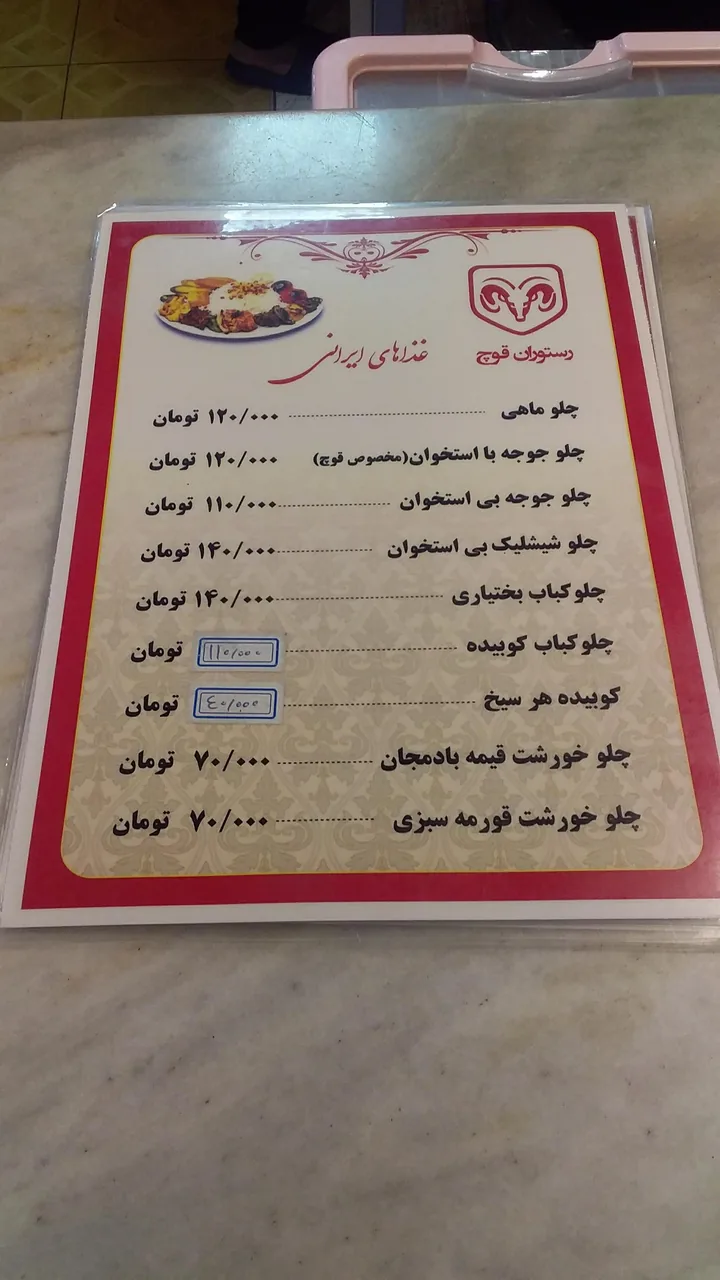 رستوران قوچ
غذاهای ایرانی
چلو ماهی ۱۲۰/۰۰۰ تومان
چلو جوجه با استخوان(مخصوص قوچ) ۱۲۰/۰۰۰ تومان
چلو جوجه بی استخوان ۱۱۰/۰۰۰ تومان
چلو شیشلیک بی استخوان ۱۴۰/۰۰۰ تومان
چلوکباب بختیاری ۱۴۰/۰۰۰ تومان
چلوکباب کوبیده ۱۱۰/۰۰۰ تومان
کوبیده هر سیخ ۴۰/۰۰۰ تومان
چلو خورشت قیمه بادمجان ۷۰/۰۰۰ تومان
چلو خورشت قورمه سبزی ۷۰/۰۰۰ تومان